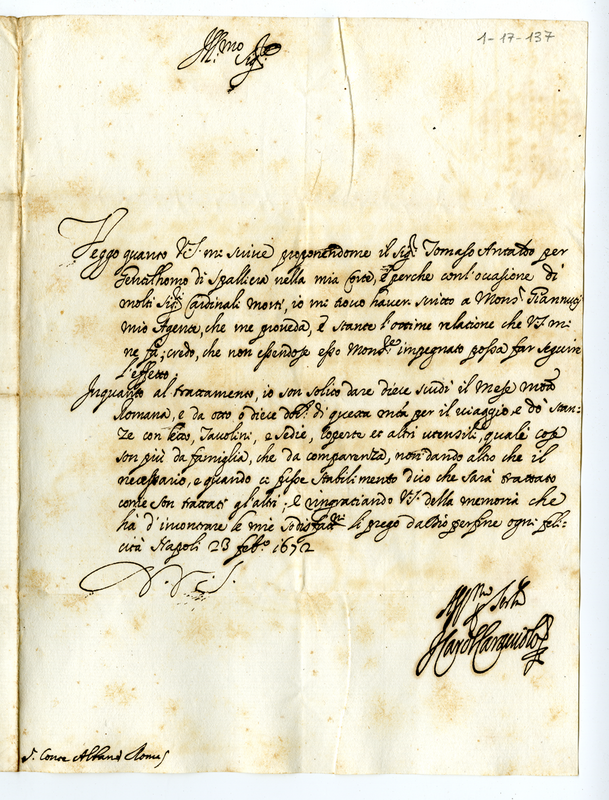 1-17-137
Ill.mo Sig.re
Veggo quanto V.S. mi scrive proponendome il Sig.r Tomaso Antaldo per
Gentilhomo di Spalliera nella mia Corte, e perche con l'occasione di
molti Sig.ri Cardinali morti, io mi trovo haver scritto a Mons.r Giannuzj
mio Agente, che me proveda, e stante l'ottime relatione che V.S. mi
ne fa; credo, che non essendose esso Mons.re impegnato possa far seguire
l'effetto;
Inquanto al trattamento, io son solito dare diece scudi il mese moneta
Romana, e da otto o diece dob.e di questa per il viaggio, e do' stan-
ze con letto, Tavolini, e sedie, coperte et altri utensili, quale cose
son più da famiglia, che da comparenza, non dando altro che il
necessario, e quando ci fusse stabilimento dico che sarà trattato
come son trattati gl'altri; e ringratiando V.S. della memoria che
hà d'incontrare le mie sodisfatt.ni li prego da Dio per fine ogni feli-
cità Napoli 23 feb.o 1672
D. V. S. I.
Aff.mo Ser.re
S. Conte Albani Roma